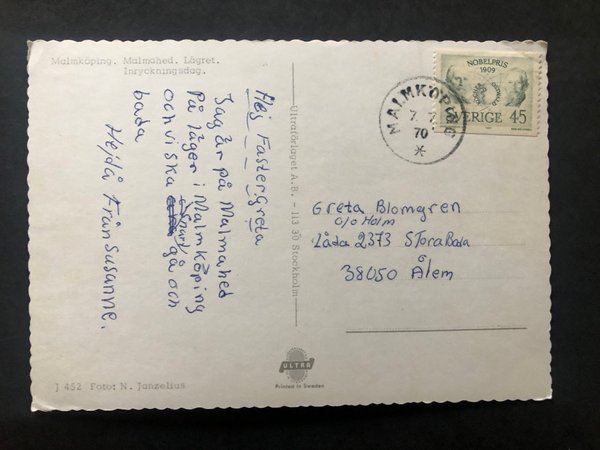 Malmköping. Malmahed. Lägret.
Inryckningsdag.
Hej Faster Greta
Jag är på Malmahed
På läger i Malmköping
och vi ska snart gå och
bada
Hejdå Från Susanne.
J 452 Foto: N. Janzelius
Ultraförlaget A.B. - 113 30 Stockholm
ULTRA
Printed in Sweden
MALMKÖPING
7. 7.
70
NOBELPRIS
1909
SVERIGE 45
Greta Blomgren
c/o Holm
Låda 2373 Stora Bada
38050 Ålem